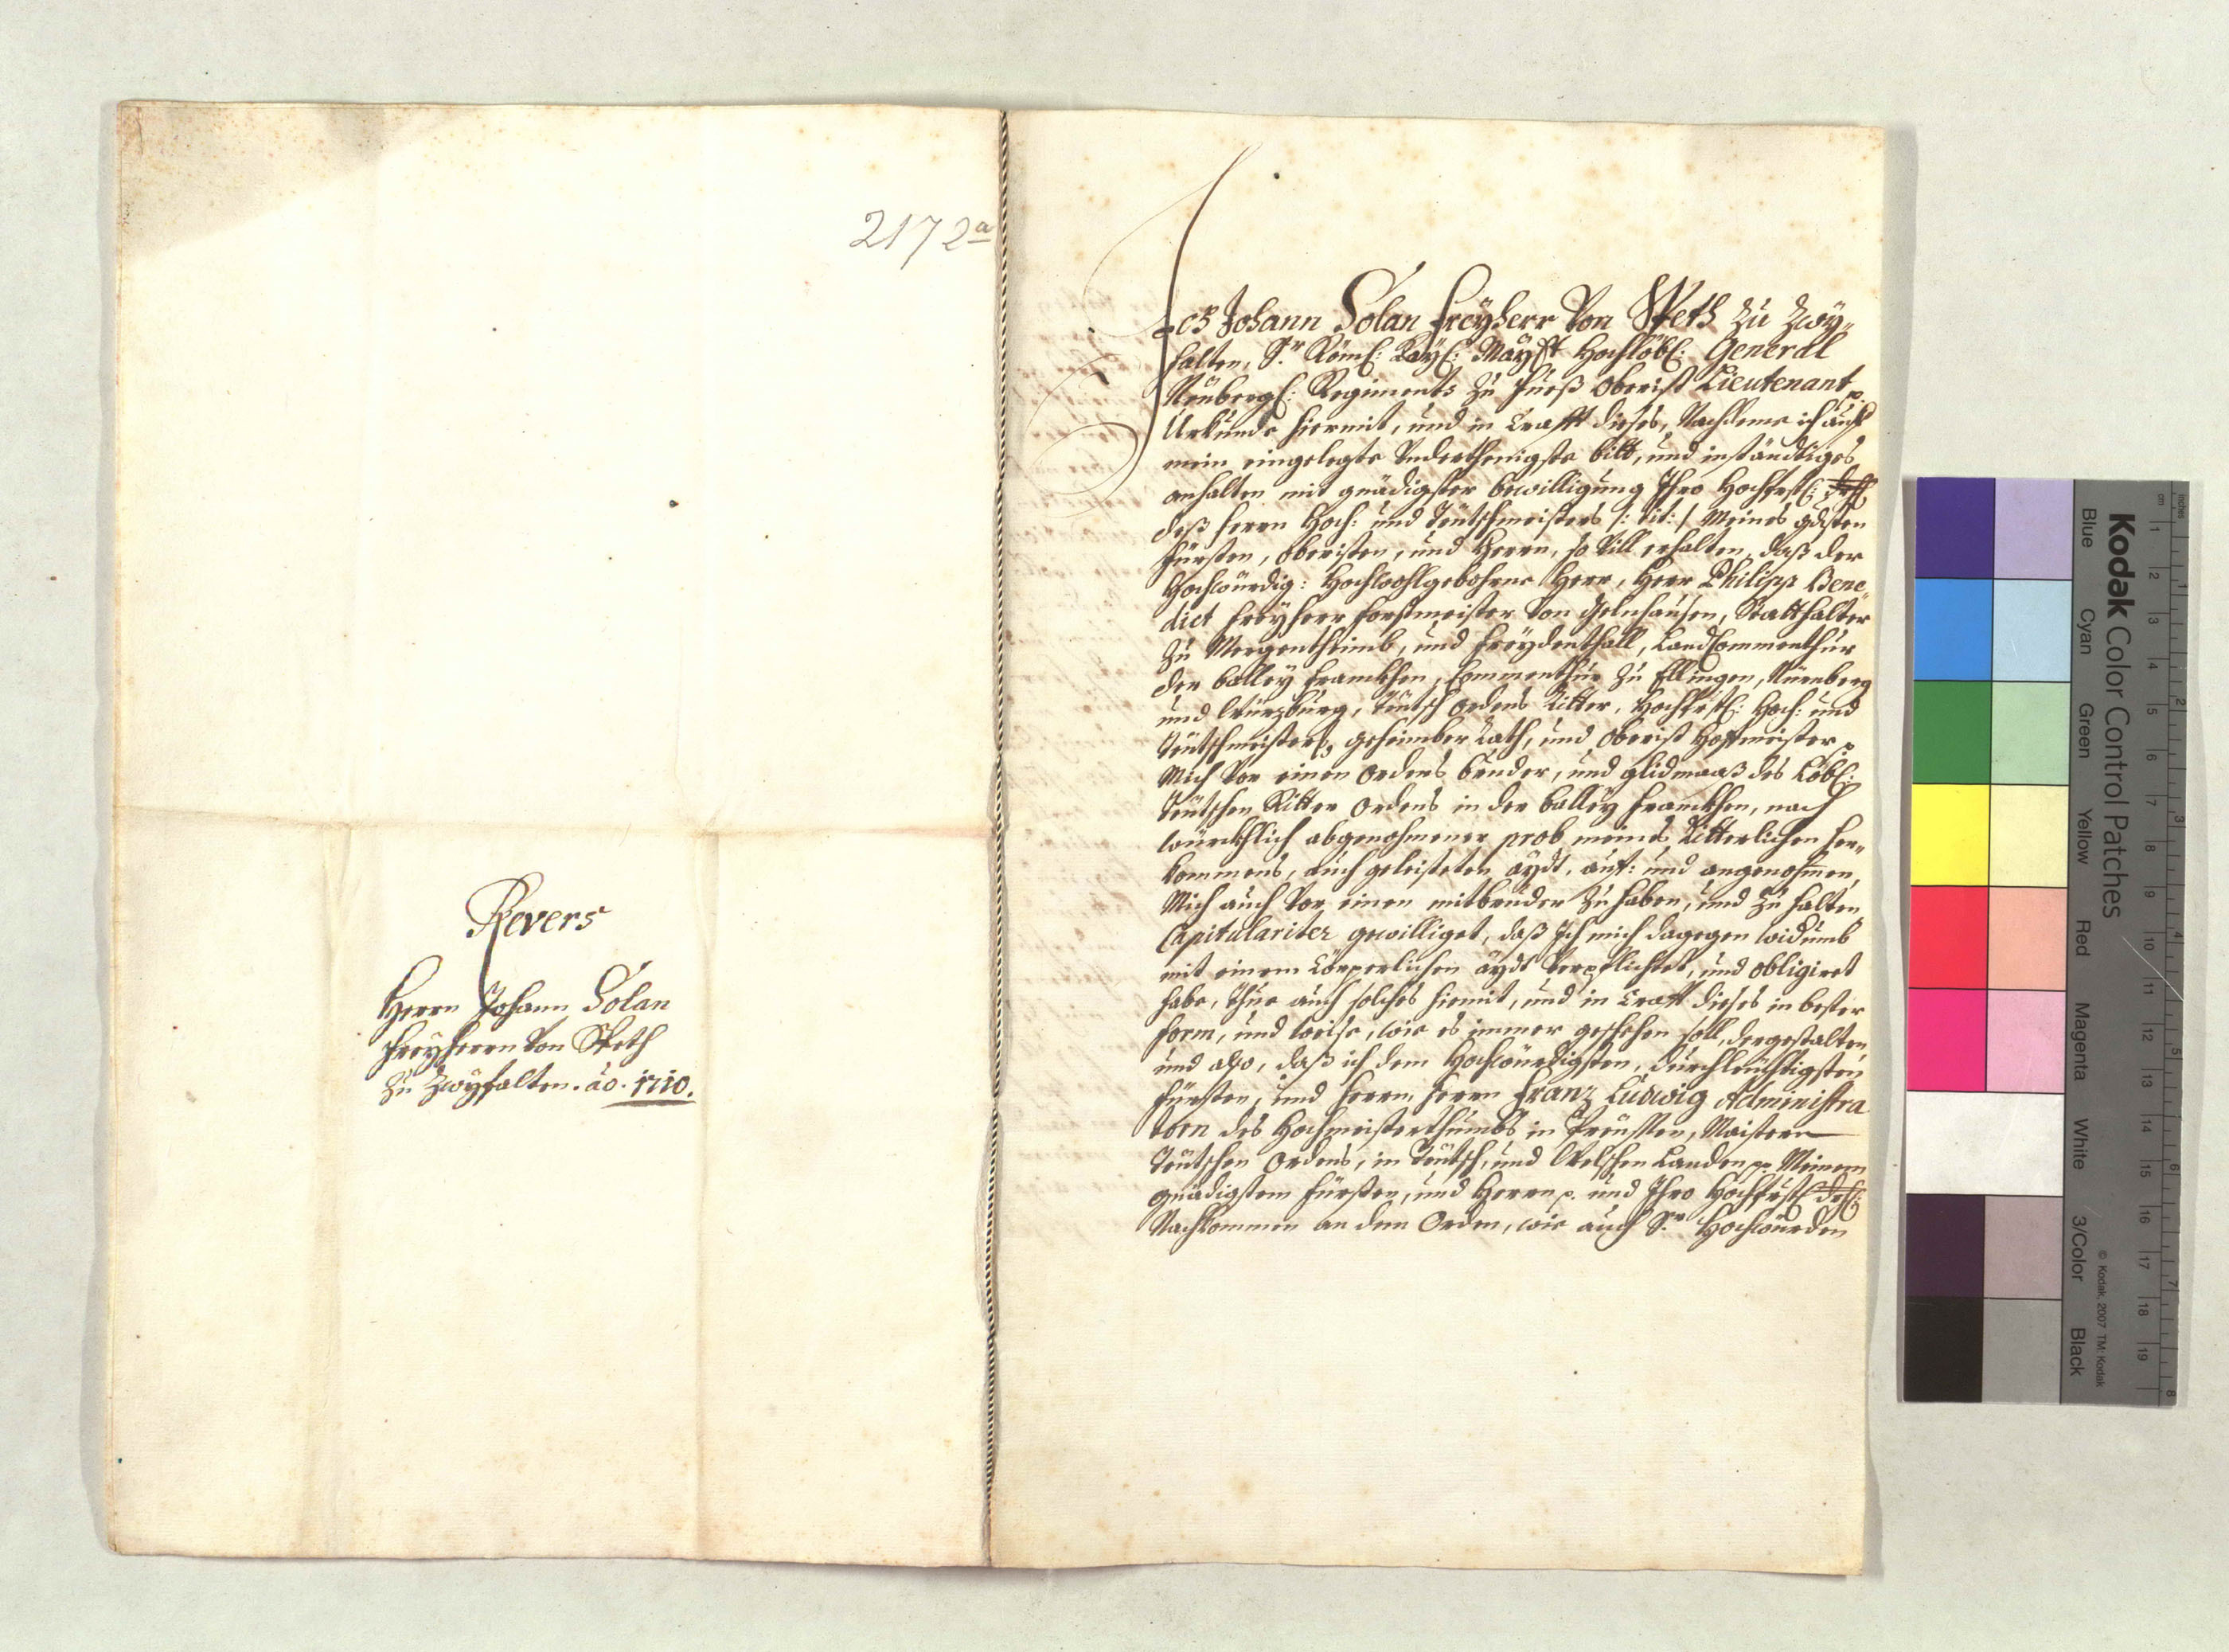 2172a
Revers
Herrn Johann Solan
Freyherrn von Speth
zu Zwyfalten. ao. 1710.
Ich Johann Solan Freyherr Von Speth Zu Zwy„
falten, S.r Röms: Kays: Mayst Hochlöbl: General
Regiments zu Fueß Obrist Lieutenant p.
Urkunde hiermit, und in Crafft dieses, Nachdeme ich auf
mein eingelegte Underthenigste bitt, und inständiges
anhalten mit gnädigster bewilligung Ihro Hochfrstl:
deß Herrn Hoch: und Teütschmeisters /: tit: / Meines gdsten
Fürsten, Obristen, und Herrn, so Vill erhalten, daß der
Hochwürdig: Hochwohlgebohrne Herr, Herr Philipp Bene„
dict Freyherr Forstmeister von Gelnhausen, Statthalter
zu Mergentheimb, und Freydenthall, LandCommenthur
der Balley Franckhen, Commenthur zu Ellingen, Nürnberg
und Würzburg, Teütsch Ordens Ritter, Hochfrstl: Hoch: und
Teütschmeisters, geheimber Rath, und Obrist Hofmeister p
Mich Vor einen Ordens bruder, und glidmaaß des Löbl:
Teütschen Ritter Ordens in der Balley Franckhen, nach
würckhlich abgenohmener prob meines Ritterlichen her„
kommens, auch geleisteten aydt, auf: und angenohmen,
Mich auch Vor einen mitbruder zu haben, und zu halten
Capitulariter gewilliget, daß Ich mich dagegen widumb
mit einem Cörperlichen aydt Verpflichtet, und obligiret
habe, thue auch solches hiemit, und in Crafft dieses in bester
form, und weise, wie es immer geschehen soll, dergestalten
und also, daß ich dem Hochwürdigsten, durchleüchtigsten
Fürsten, und Herrn, Herrn Franz Ludwig Administra
torn des Hochmeisterthumbs in Preüssen, Maistern
Teütschen Ordens, in Teütsch, und Welschen Landen pp Meinem
gnädigstem Fürsten, und Herrn p. und Ihro Hochfrstl
Nachkommen an dem Orden, wie auch S.r Hochwürden
Kodak Color Control Patches
© Kodak, 2007 TM: Kodak
Blue Cyan Green Yellow Red Magenta White 3/Color Black
inches 1 2 3 4 5 6 7 8
cm 1 2 3 4 5 6 7 8 9 10 11 12 13 14 15 16 17 18 19